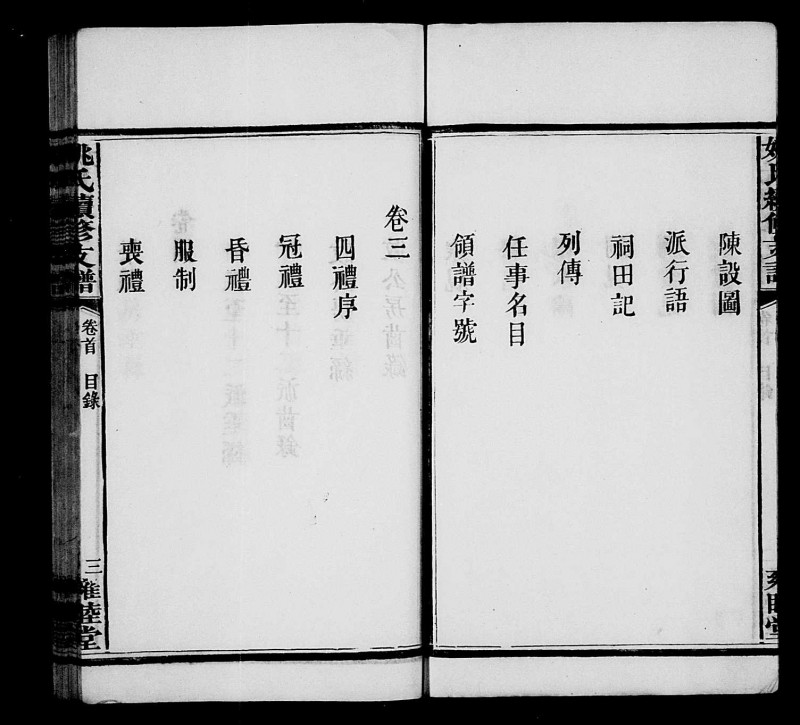 陳設圖
派行語
祠田記
列傳
任事名目
領譜字號
卷三
四禮序
冠禮
昏禮
服制
喪禮
姚氏續修支譜
卷首 目錄
三
雍睦堂